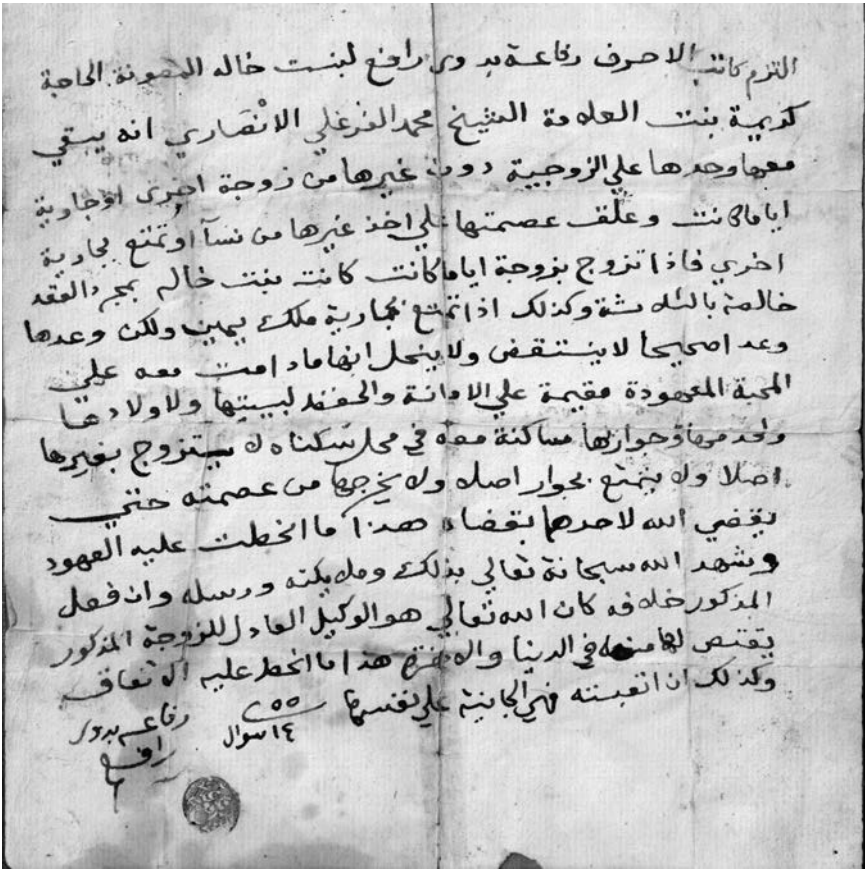 التزم كاتب الاحرف رفاعة بدوي رافع لبنت خاله المصونة الحاجة
كريمية بنت العلامة الشيخ محمد الفرغلي الانْصَاري انه يبقي
معها وحدها علي الزوجية دون غيرها من زوجة اخري او جارية
اياما كانت وعلق عصمتها علي اخذ غيرها من نسآ او تمتع بجارية
اخري فاذا تزوج بزوجة اياما كانت كانت بنت خاله بمجرد العقد
خالصة بالثلاثة وكذلك اذا تمتع بجارية ملك يمين ولكن وعدها
وعدا صحيحا لا ينتقض ولا ينحل انها ما دامت معه علي
المحبة المعهودة مقيمة علي الامانة والحفظ لبيتها ولاولادها
ولخدمها وجوارها ساكنة معه في محل سكناه لا يتزوج بغيرها
اصلا ولا يتمتع بجوار اصلا ولا يخرجها من عصمته حتي
يقضي الله لاحدهما بقضاه هذا ما انخطت عليه العهود
ونشهد الله سبحانه تعالي بذلك وملايكته ورسله وان فعل
المذكور خلافه كان الله تعالي هو الوكيل العادل للزوجة المذكور
يقتص لها منه في الدنيا والاخرة هذا ما انخط عليه الاتفاق
وكذلك ان اتعبته فهي الجانية علي نفسها
٥٥
١٤ شوال
رفاعه بدوي
رافع